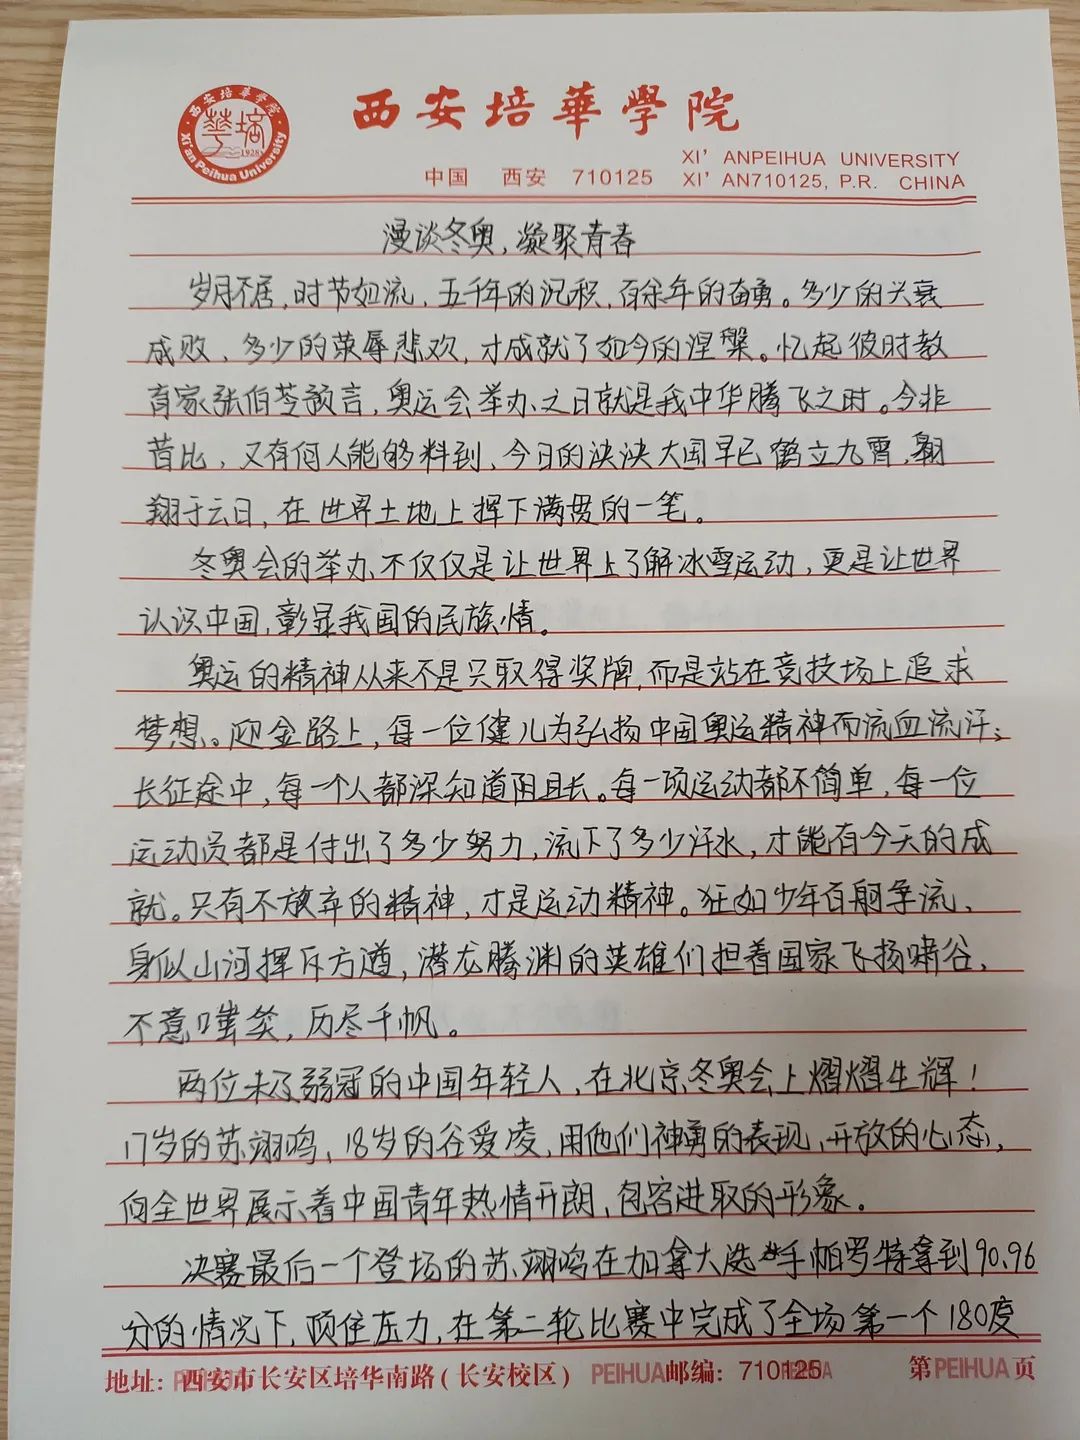 西安培華學院
Xi'an Peihua University
1928
西安培華學院
XI' ANPEIHUA UNIVERSITY
中国 西安 710125 XI' AN710125, P.R. CHINA
漫谈冬奥,凝聚青春
岁月不居,时节如流,五千年的沉积,百余年的奋勇。多少的兴衰
成败、多少的荣辱悲欢,才成就了如今的涅槃。忆起彼时教
育家张伯苓预言,奥运会举办之日就是我中华腾飞之时。今非
昔比,又有何人能够料到,今日的泱泱大国早已鹤立九霄,翱
翔于云日,在世界土地上挥下满贯的一笔。
冬奥会的举办、不仅仅是让世界上了解冰雪运动,更是让世界
认识中国,彰显我国的民族情。
奥运的精神从来不是只取得奖牌,而是站在竞技场上追求
梦想。迎金路上,每一位健儿为弘扬中国奥运精神而流血流汗;
长征途中,每一个人都深知道阻且长。每一项运动都不简单,每一位
运动员都是付出了多少努力,流下了多少汗水,才能有今天的成
就。只有不放弃的精神,才是运动精神。狂如少年百舸争流,
身似山河挥斥方遒,潜龙腾渊的英雄们担着国家飞扬啸谷,
不意嗤笑,历尽千帆。
两位未及弱冠的中国年轻人,在北京冬奥会上熠熠生辉!
17岁的苏翊鸣,18岁的谷爱凌,用他们神勇的表现、开放的心态,
向全世界展示着中国青年热情开朗,包容进取的形象。
决赛最后一个登场的苏翊鸣在加拿大选手帕罗特拿到90.96
分的情况下,顶住压力,在第二轮比赛中完成了全场第一个180度
地址: 西安市长安区培华南路(长安校区) PEIHUA邮编: 710125 第PEIHUA页